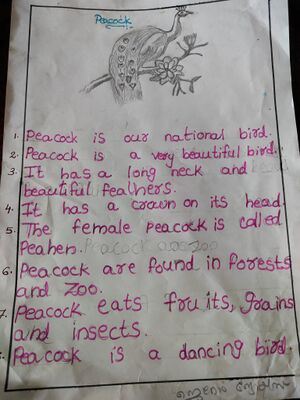 Peacock
1. Peacock is our national bird.
2. Peacock is a very beautiful bird.
3. It has a long neck and
beautiful feathers.
4. It has a crown on its head.
5. The female peacock is called
Peahen.
6. Peacock are found in forests
and zoo.
7. Peacock eats fruits, grains
and insects.
Peacock is a dancing bird.